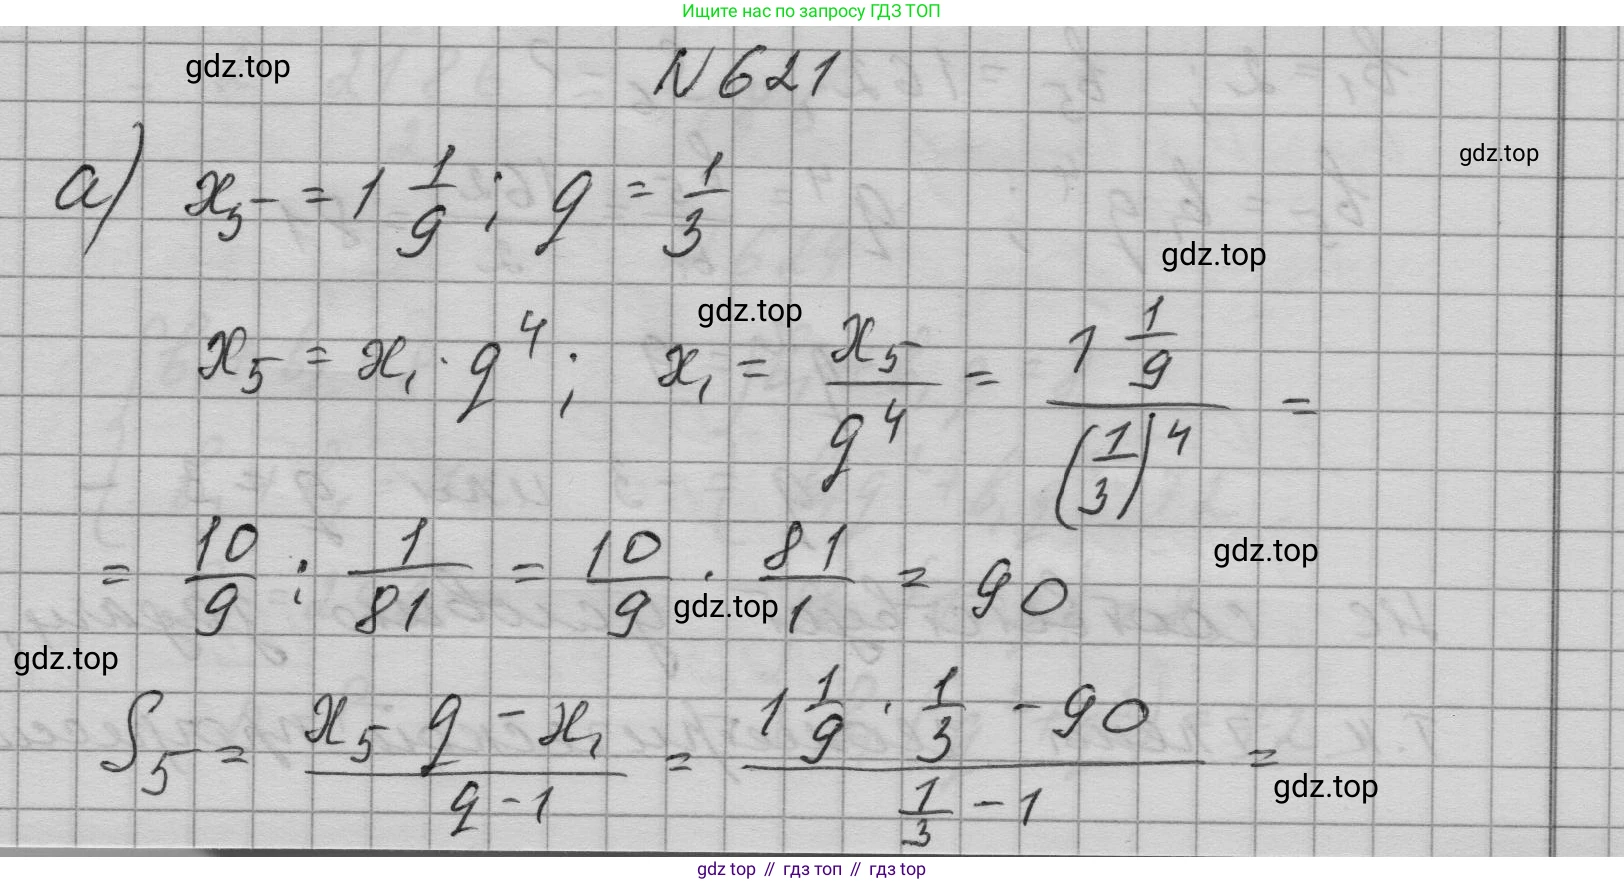 Ищите нас по запросу ГДЗ ТОП
gdz.top
N 621
gdz.top
а) x₅ = 1 1/9 ; q = 1/3
gdz.top
gdz.top
x₅ = x₁ · q⁴ ; x₁ = x₅/q⁴ = 1 1/9 / (1/3)⁴ =
gdz.top
= 10/9 : 1/81 = 10/9 · 81/1 = 90
gdz.top
gdz.top
S₅ = (x₅ q - x₁)/(q - 1) = (1 1/9 · 1/3 - 90)/(1/3 - 1) =
gdz.top
gdz top // гдз топ // гдз top